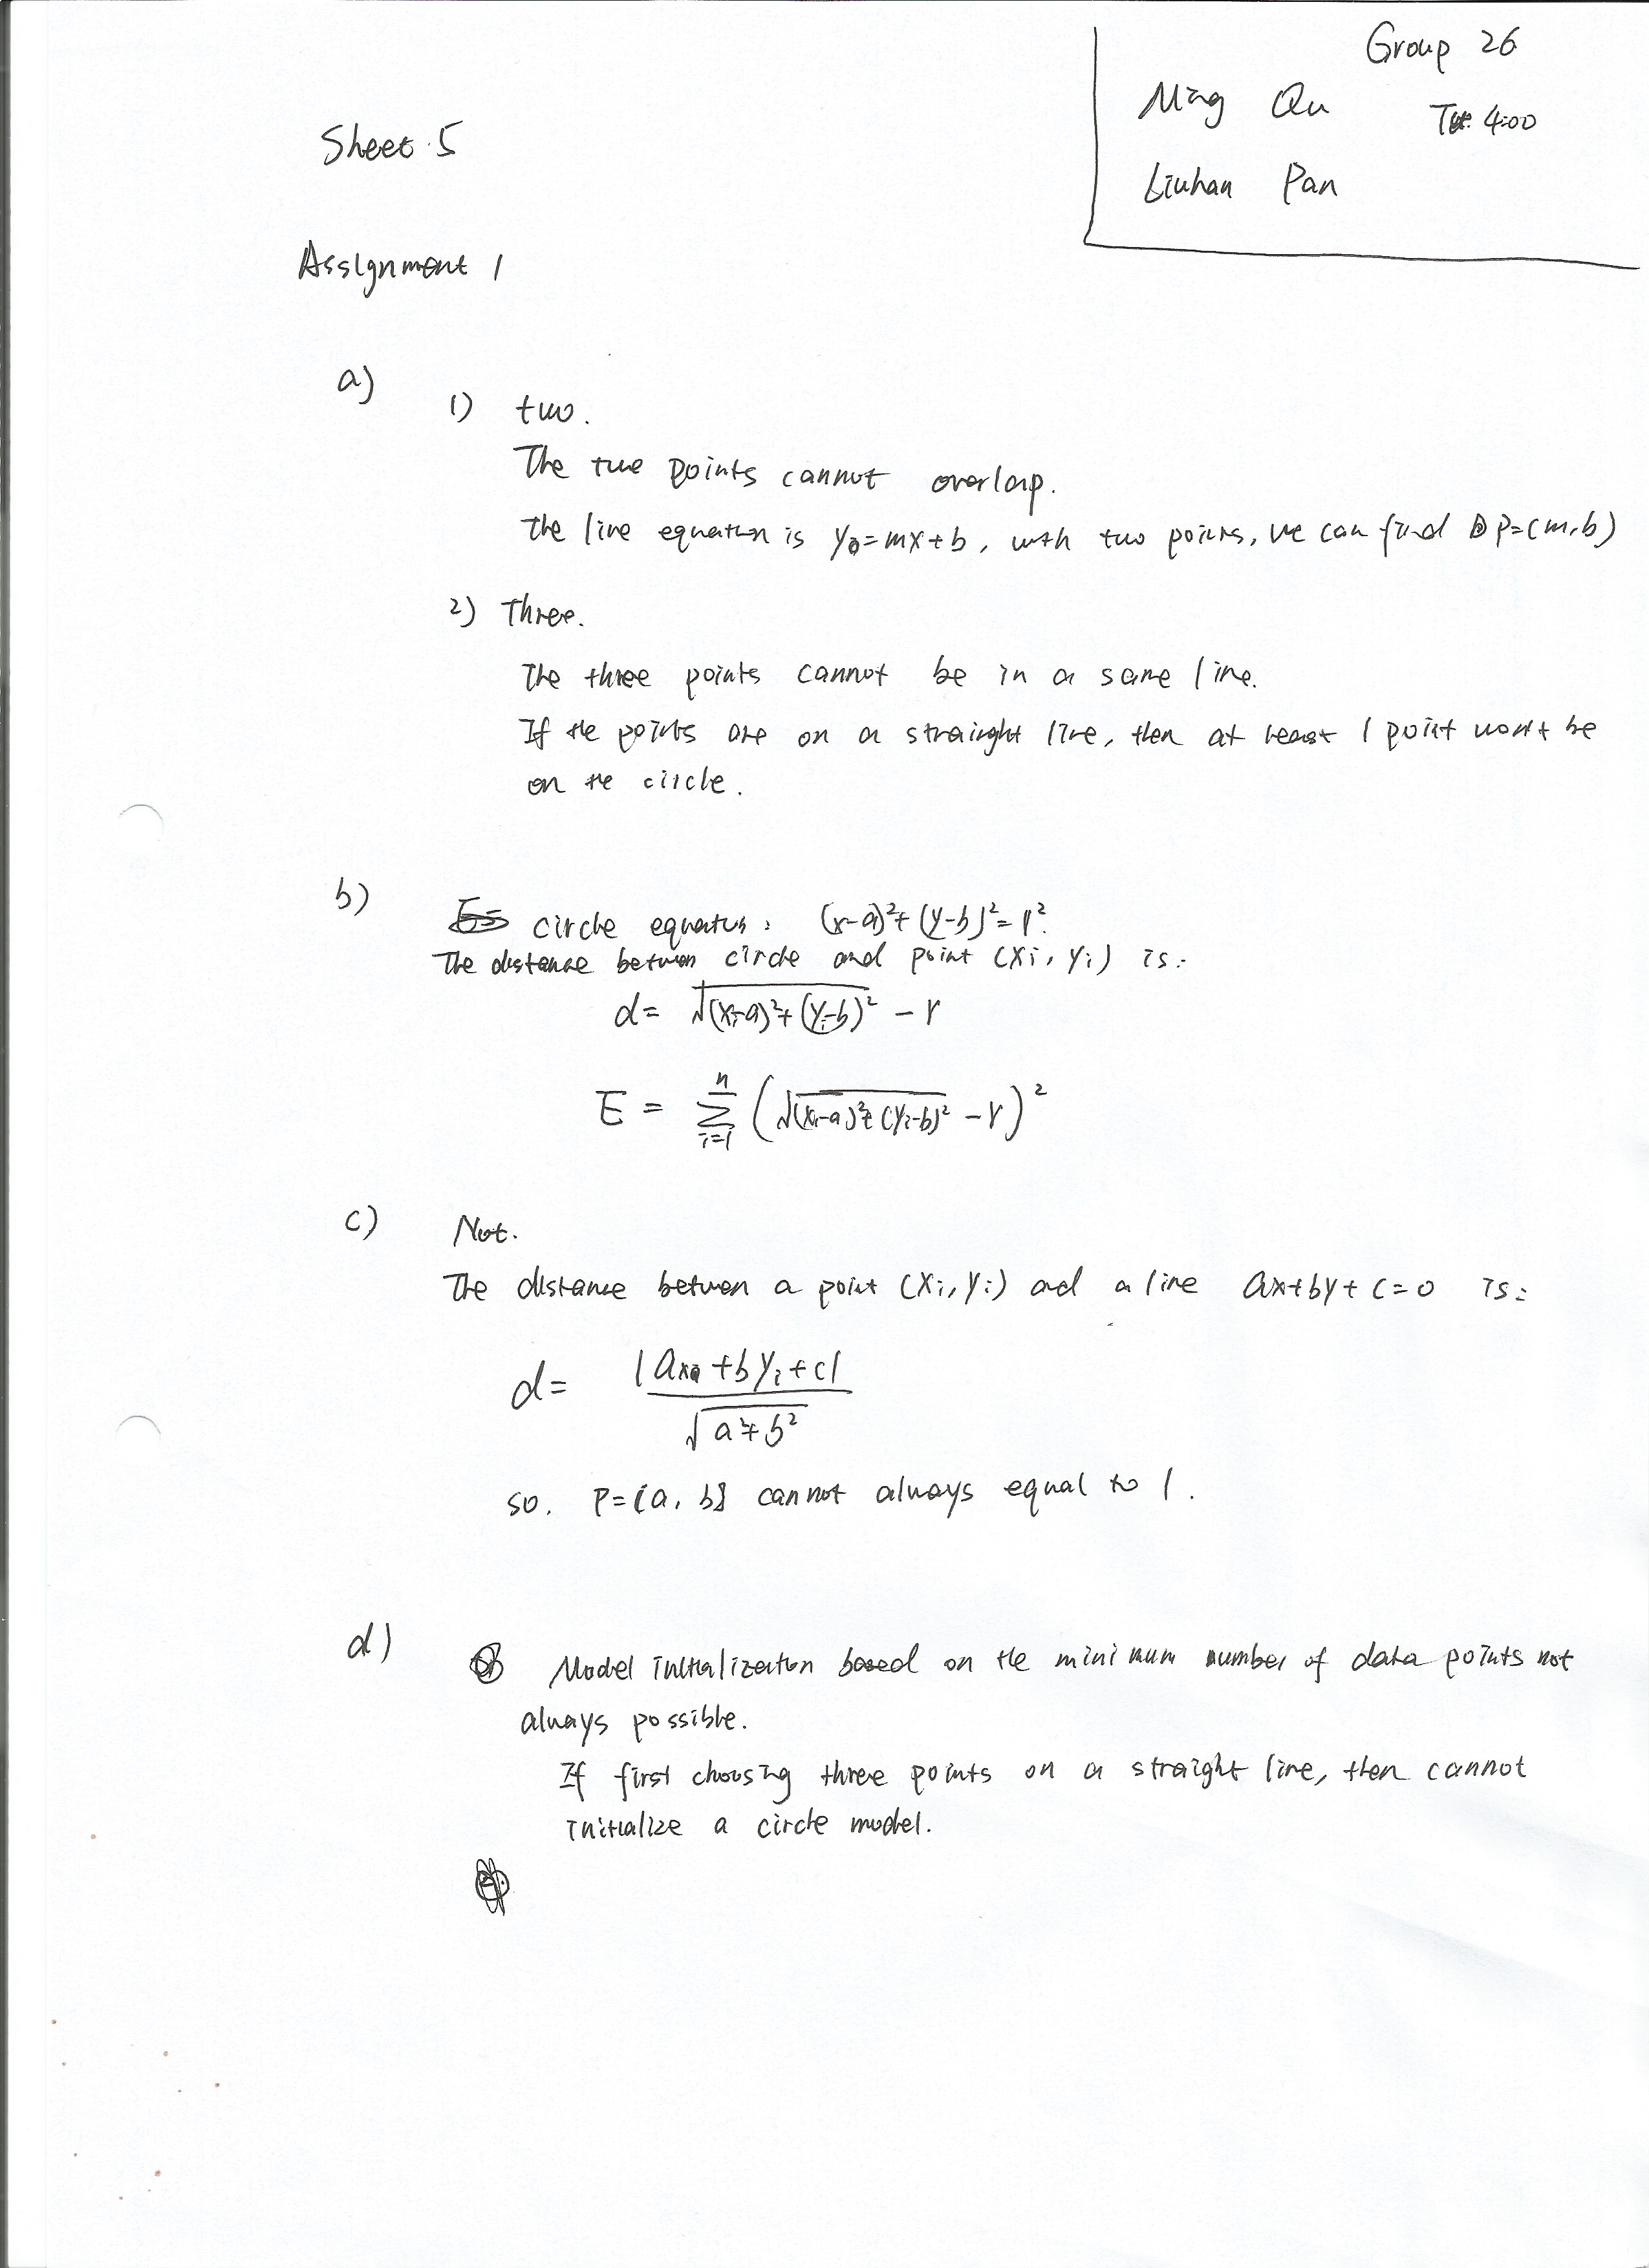 Group 26
Ming Qu Tue. 4:00
Liuhan Pan
Sheet 5
Assignment 1
a)
1) two.
The two points cannot overlap.
The line equation is y=mx+b, with two points, we can find P=(m,b)
2) Three.
The three points cannot be in a same line.
If the points are on a straight line, then at least 1 point won't be
on the circle.
b)
circle equation: (x-a)²+(y-b)²=r².
The distance between circle and point (xi, yi) is:
d= √((xi-a)²+(yi-b)²) - r
E = Σ_{i=1}^{n} (√((xi-a)²+(yi-b)²) - r)²
c) Not.
The distance between a point (xi, yi) and a line ax+by+c=0 is:
d= |axi+byi+c| / √(a²+b²)
so. P=[a, b] cannot always equal to 1.
d)
Model initialization based on the minimum number of data points not
always possible.
If first choosing three points on a straight line, then cannot
initialize a circle model.